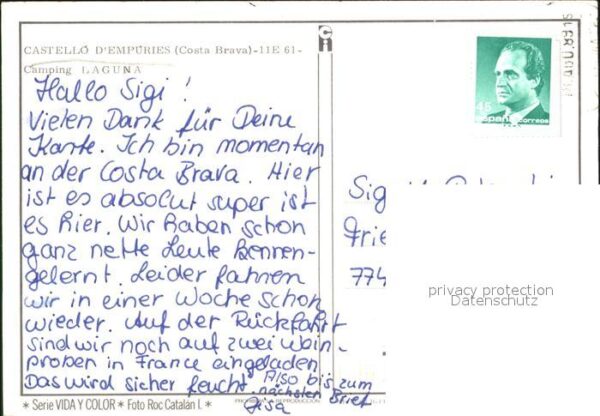 CASTELLÓ D'EMPÚRIES (Costa Brava)-11E 61-
Camping LAGUNA
Hallo Sigi!
Vielen Dank für Deine
Karte. Ich bin momentan
an der Costa Brava. Hier
ist es absolut super ist
es hier. Wir haben schon
ganz nette Leute kennen-
gelernt. Leider fahren
wir in einer Woche schon
wieder. Auf der Rückfahrt
sind wir noch auf zwei Wein-
proben in France eingeladen.
Das wird sicher feucht. Also bis zum
nächsten Brief
* Serie VIDA Y COLOR * Foto Roc Catalán I. *
45
España correos
Sig
Frie
774
privacy protection
Datenschutz